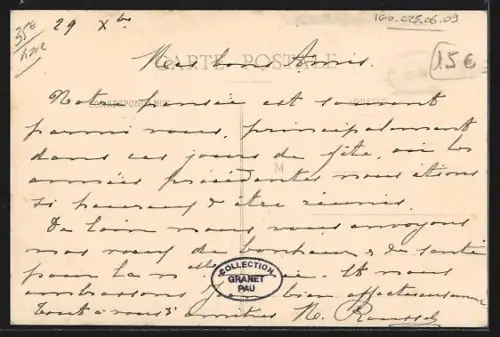 35€
29 Xbre
160.025.06.09
15€
Mes bons Amis.
CARTE POSTALE
CORRESPONDANCE
Notre pensée est souvent
parmi vous, principalement
dans ces jours de fête, où les
années précédentes nous étions
si heureux d'être réunis.
M
De loin nous vous envoyons
nos vœux de bonheur & de santé
pour la nlle Et nous
embrassons bien affectueusement
Tout à vous d'amitiés
COLLECTION
GRANET
PAU